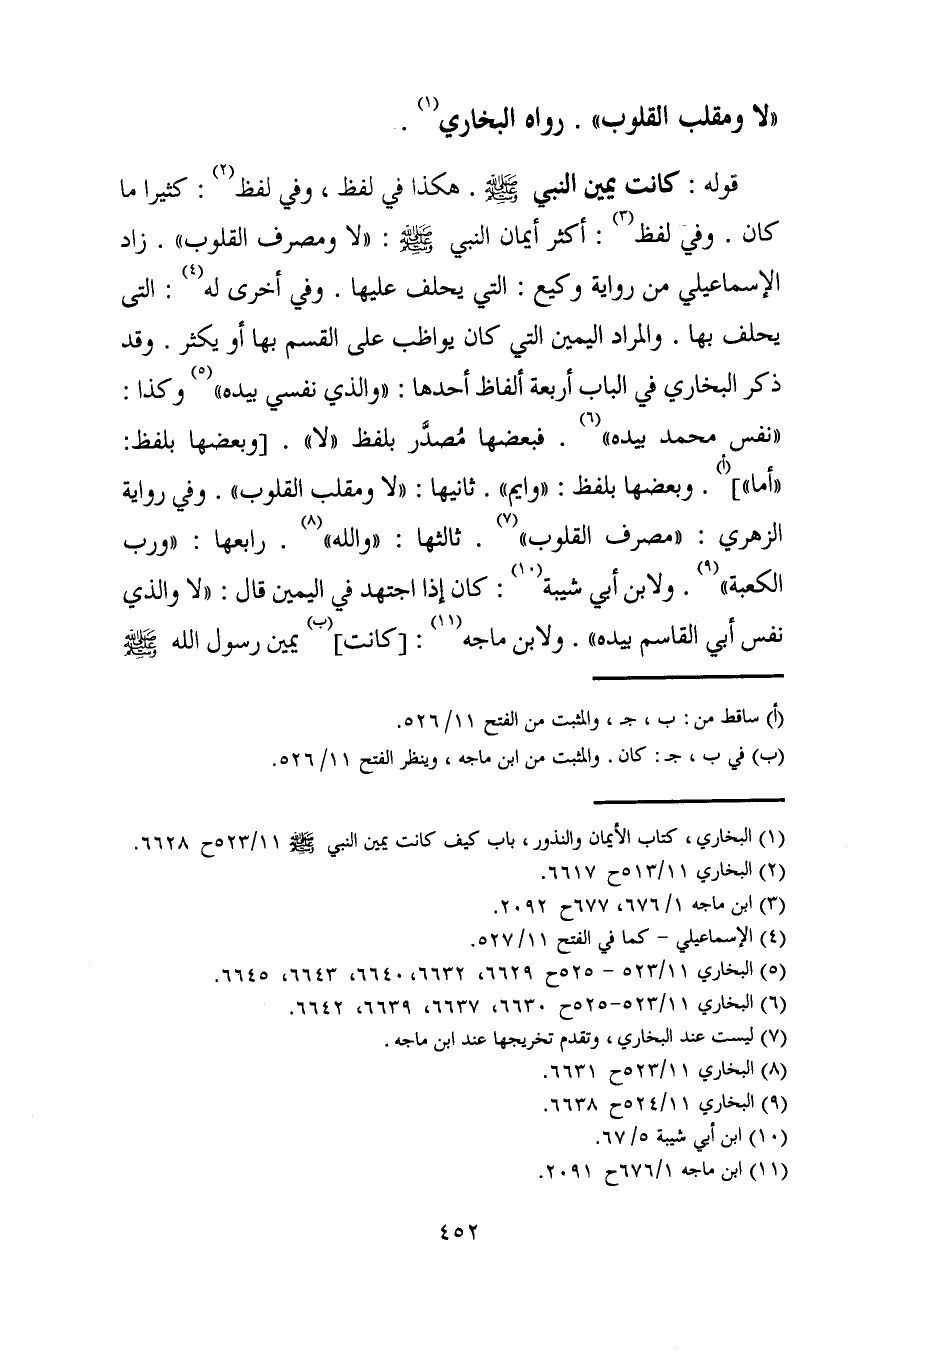 «لا ومقلب القلوب» . رواه البخاري(١) .
قوله : كانت يمين النبي ﷺ . هكذا في لفظ ، وفي لفظ(٢) : كثيرا ما
كان . وفي لفظ(٣) : أكثر أيمان النبي ﷺ : «لا ومصرف القلوب» . زاد
الإسماعيلي من رواية وكيع : التي يحلف عليها . وفي أخرى له(٤) : التى
يحلف بها . والمراد اليمين التي كان يواظب على القسم بها أو يكثر . وقد
ذكر البخاري في الباب أربعة ألفاظ أحدها : «والذي نفسي بيده»(٥) وكذا :
«نفس محمد بيده»(٦) . فبعضها مُصدَّر بلفظ «لا» . [وبعضها بلفظ:
«أما»](أ) . وبعضها بلفظ : «وايم» . ثانيها : «لا ومقلب القلوب» . وفي رواية
الزهري : «مصرف القلوب»(٧) . ثالثها : «والله»(٨) . رابعها : «ورب
الكعبة»(٩) . ولابن أبي شيبة(١٠) : كان إذا اجتهد في اليمين قال : «لا والذي
نفس أبي القاسم بيده» . ولابن ماجه(١١) : [كانت](ب) يمين رسول الله ﷺ
(أ) ساقط من : ب ، جـ ، والمثبت من الفتح ١١/ ٥٢٦.
(ب) في ب ، جـ : كان . والمثبت من ابن ماجه ، وينظر الفتح ١١/ ٥٢٦.
(١) البخاري ، كتاب الأيمان والنذور ، باب كيف كانت يمين النبي ﷺ ١١/ ٥٢٣ح ٦٦٢٨.
(٢) البخاري ١١/ ٥١٣ح ٦٦١٧.
(٣) ابن ماجه ١/ ٦٧٦، ٦٧٧ح ٢٠٩٢.
(٤) الإسماعيلي - كما في الفتح ١١/ ٥٢٧.
(٥) البخاري ١١/ ٥٢٣ - ٥٢٥ح ٦٦٢٩، ٦٦٣٢، ٦٦٤٠، ٦٦٤٣، ٦٦٤٥.
(٦) البخاري ١١/ ٥٢٣-٥٢٥ح ٦٦٣٠، ٦٦٣٧، ٦٦٣٩، ٦٦٤٢.
(٧) ليست عند البخاري ، وتقدم تخريجها عند ابن ماجه .
(٨) البخاري ١١/ ٥٢٣ح ٦٦٣١.
(٩) البخاري ١١/ ٥٢٤ح ٦٦٣٨.
(١٠) ابن أبي شيبة ٥/ ٦٧.
(١١) ابن ماجه ١/ ٦٧٦ح ٢٠٩١.
٤٥٢